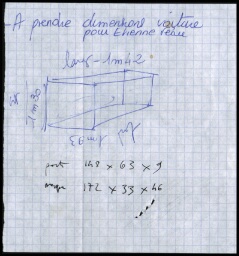 - A prendre dimensions voiture
pour Etienne
larg - 1m42
1m30
prof
port 148 x 63 x 9
172 x 33 x 46